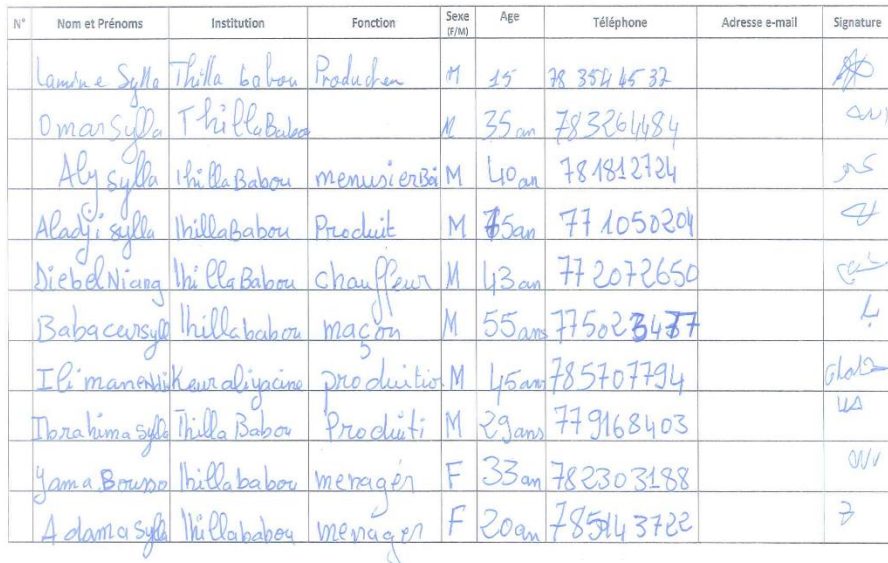 N° Nom et Prénoms Institution Fonction Sexe (F/M) Age Téléphone Adresse e-mail Signature
Lamine Sylla Thilla babou Producteu M 15 78 354 45 32
Omar Sylla Thilla Babou M 35 an 783264484
Aly Sylla thilla Babou menusier Boi M 40 an 781812724
Aladji sylla thilla Babou Produit M 75 an 77 1050204
Diebel Niang thilla Babou chauffeur M 43 an 77 2072650
Babacar sylla thilla babou maçon M 55 ans 775023477
Ilimane Keur aliyacine produitio M 45 ans 785707794
Ibrahima sylla Thilla Babou Produiti M 29 ans 779168403
Yama Bousso thilla babou menagér F 33 an 782303188
Adama sylla thilla babou menager F 20 an 785143722